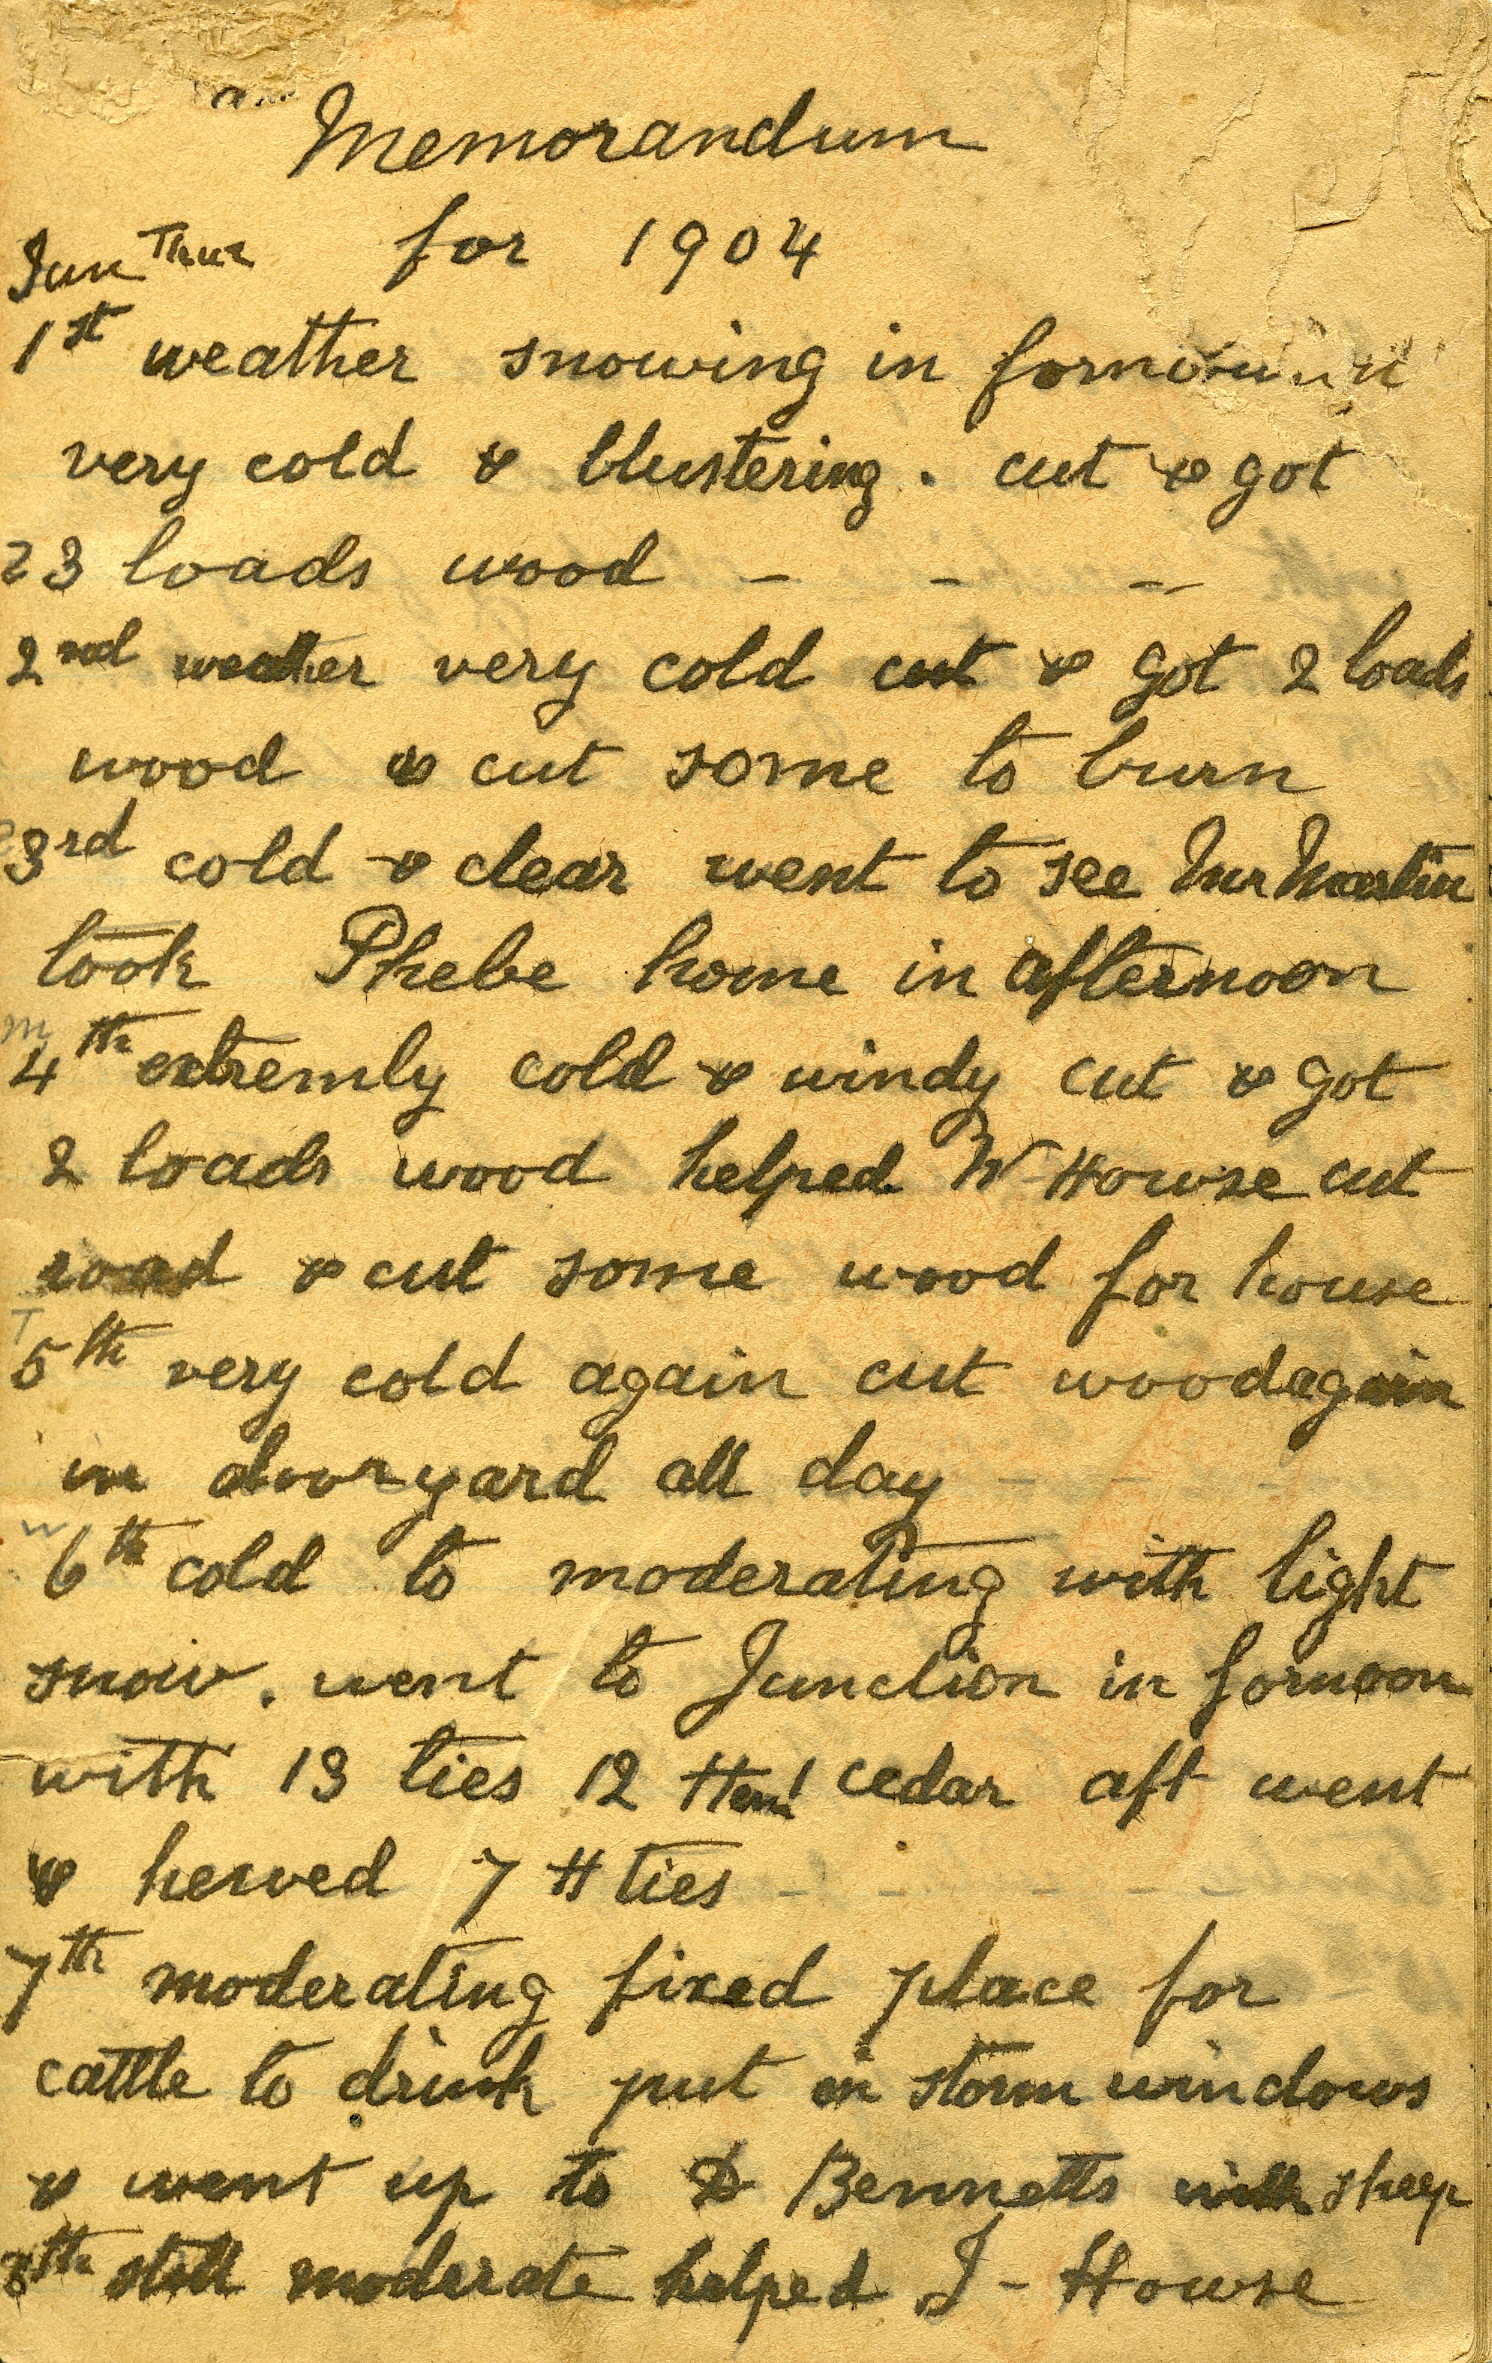 Memorandum
for 1904
Jan Thur
1st weather snowing in fornoon
very cold & blustering. cut & got
3 loads wood - - -
2nd weather very cold cut & got 2 loads
wood & cut some to burn
3rd cold & clear went to see Mr Martin
took Phebe home in afternoon
M
4th extremly cold & windy cut & got
2 loads wood helped W Howse cut
road & cut some wood for house
T
5th very cold again cut wood again
in dooryard all day - - -
W
6th cold to moderating with light
snow. went to Junction in fornoon
with 13 ties 12 Hem cedar aft went
& hewed 7 H ties - - - -
7th moderating fixed place for
cattle to drink put in storm windows
& went up to D Bennetts with sheep
8th still moderate helped J - Howse